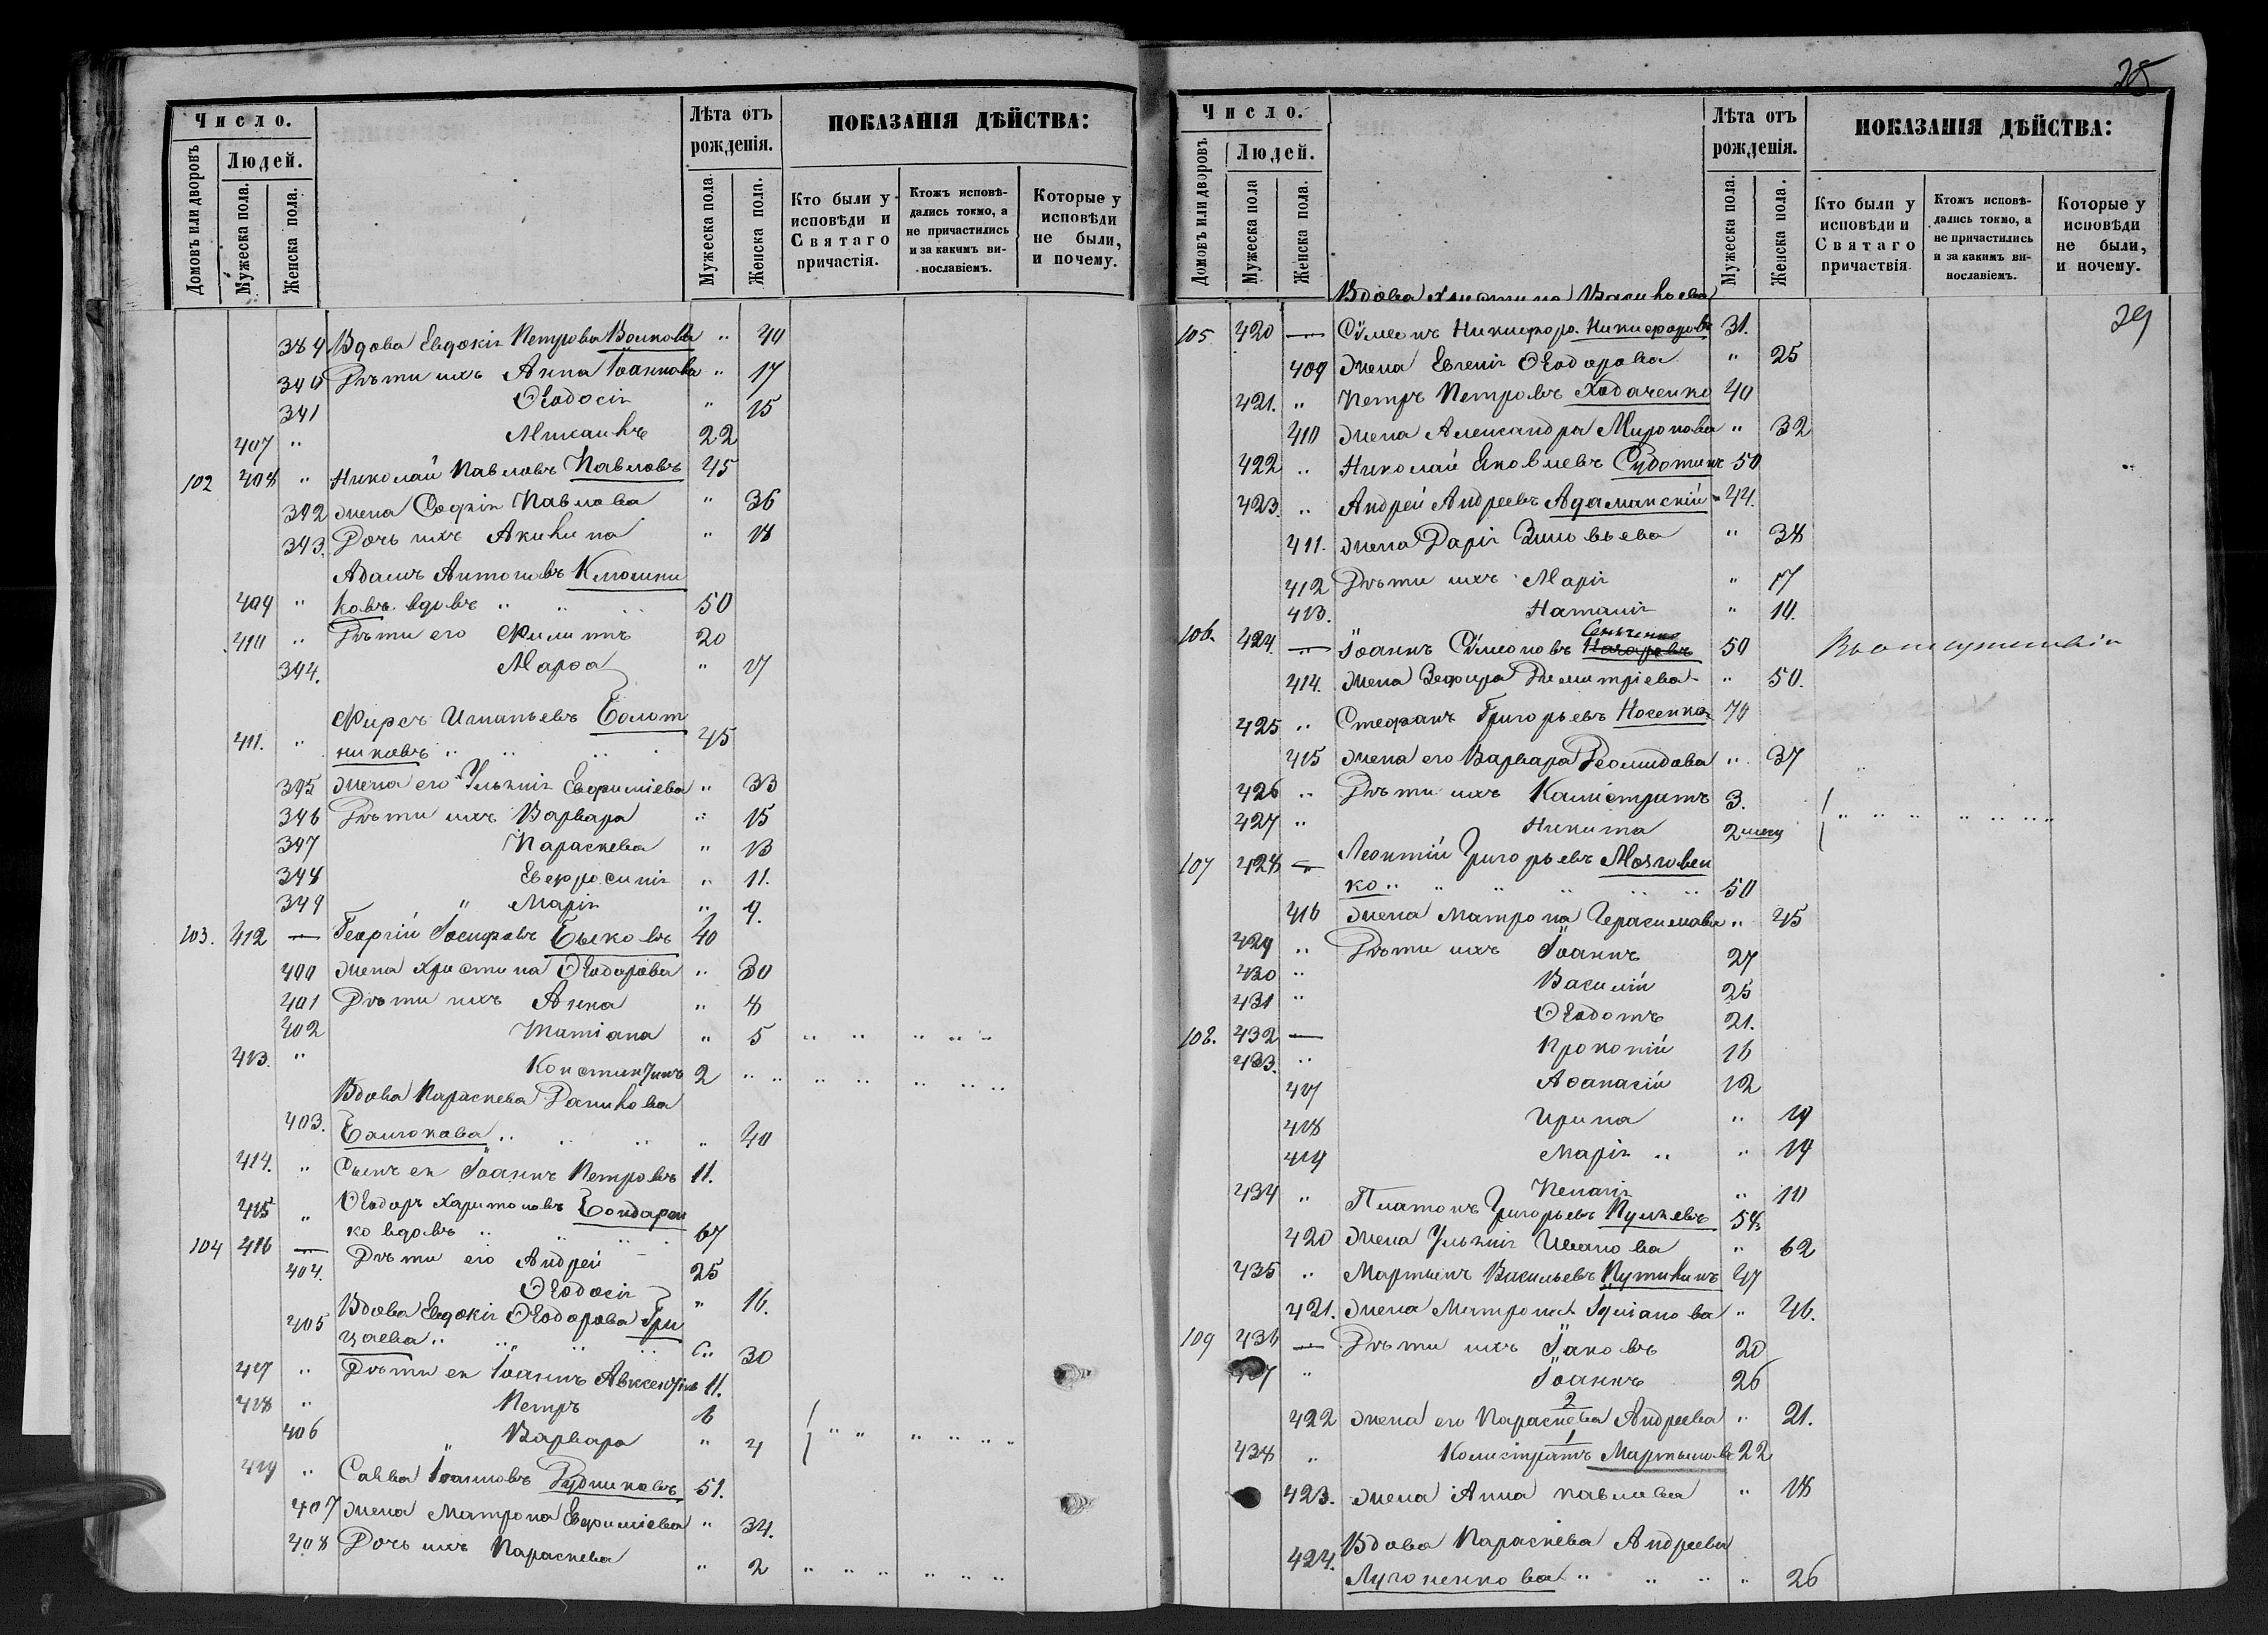 Число.
Домовъ или дворовъ
Людей.
Мужеска пола.
Женска пола.
Лѣта отъ рожденія.
Мужеска пола.
Женска пола.
ПОКАЗАНІЯ ДѢЙСТВА:
Кто были у исповѣди и Святаго причастія.
Ктожъ исповѣдались токмо, а не причастились и за какимъ винословіемъ.
Которые у исповѣди не были, и почему.
Вдова Евдокія Петрова Волкова " 40
Дѣти ихъ Анна Іоаннова " 17
391 Ѳеодосія " 15
407 " Михаилъ 22
102 408 " Николай Павловъ Павловъ 45
392 жена Софія Павлова " 36
393. Дочь ихъ Акилина " 18
Адамъ Антоновъ
409 " ковъ вдовъ " " " 50
410 " Дѣти его Филиппъ 20
394. Марѳа " 17
Фирсъ Игнатьевъ Болот
411. " никовъ " " " 45
395 жена его Ульянія Евфиміева " 33
396 Дѣти ихъ Варвара " 15
397 Параскева " 13
398 Евфросинія " 11.
399 " Марія " 9.
103. 412 — Георгій Іосифовъ Быковъ 40
400 жена Христина Ѳеодорова " 30
401 Дѣти ихъ Анна " 8
402 Татіана " 5 " " " " "
413. " Константинъ 2 " " " " " " "
Вдова Параскева Данилова
403. " " " " 40
414. " Сынъ ея Іоаннъ Петровъ 11.
415 " Ѳеодоръ Харитоновъ Бондарен
ко вдовъ " " " 67
104 416 — Дѣти его Андрей 25
404. Ѳеодосія " 16.
405 Вдова Евдокія Ѳеодорова Гри
цаева " " " " " 30
417 " Дѣти ея Іоаннъ 11.
418 " Петръ 6
406 " Варвара " 4 " " " " " "
419 " Савва Іоанновъ Рудниковъ 51.
407 жена Матрона Евфиміева " 34.
408 Дочь ихъ Параскева " 2 " " " " " "
28
Число.
Домовъ или дворовъ
Людей.
Мужеска пола
Женска пола.
Лѣта отъ рожденія.
Мужеска пола.
Женска пола.
ПОКАЗАНІЯ ДѢЙСТВА:
Кто были у исповѣди и Святаго причаствія
Ктожъ исповѣдались токмо, а не причастились и за какимъ винославіемъ.
Которые у исповѣди не были, и почему.
Вдова Христина Васильева
29
105 420 — Сѵмеонъ Никифоро. Никифоровъ 31.
409 жена Евгенія Ѳеодорова " 25
421. " Петръ Петровъ Ходаченко 40
410 жена Александра Миронова " 32
422 " Николай Яковлевъ 50
423. " Андрей Андреевъ Адаманскій 44.
411. жена Дарія Зиновьева " 38
412 Дѣти ихъ Марія " 17
413. Наталія " 14.
106. 424 — Іоаннъ Сѵмеоновъ 50
414. жена Димитріева " 50.
425 " Стефанъ Григорьевъ Носенко 70
415 жена его Варвара " 37
426 " Дѣти ихъ Калистратъ 3.
427 " Никита 2 " " " " " "
107 428 — Леонтій Григорьевъ
ко " " " " " 50
416 жена Матрона Герасимова " 45
429 " Дѣти ихъ Іоаннъ 27
430 " Василій 25
431 " Ѳеодотъ 21.
108. 432 — Прокопій 16
433. " Аѳанасій 12
417 Ирина " 19
418 Марія " " 14
419 Пелагія " 10
434 " Платонъ Григорьевъ 58
420 жена Ульянія Иванова " 62
435 " Мартынъ Васильевъ 47
421. жена Матрона " 46.
109 436 — Дѣти ихъ Іаковъ 20
" Іоаннъ 26
2
422 жена его Параскева Андреева " 21.
1
438 " Калистратъ Мартыновъ 22
423. жена Анна Павлова " 18
Вдова Параскева Андреева
424. " " " " 26